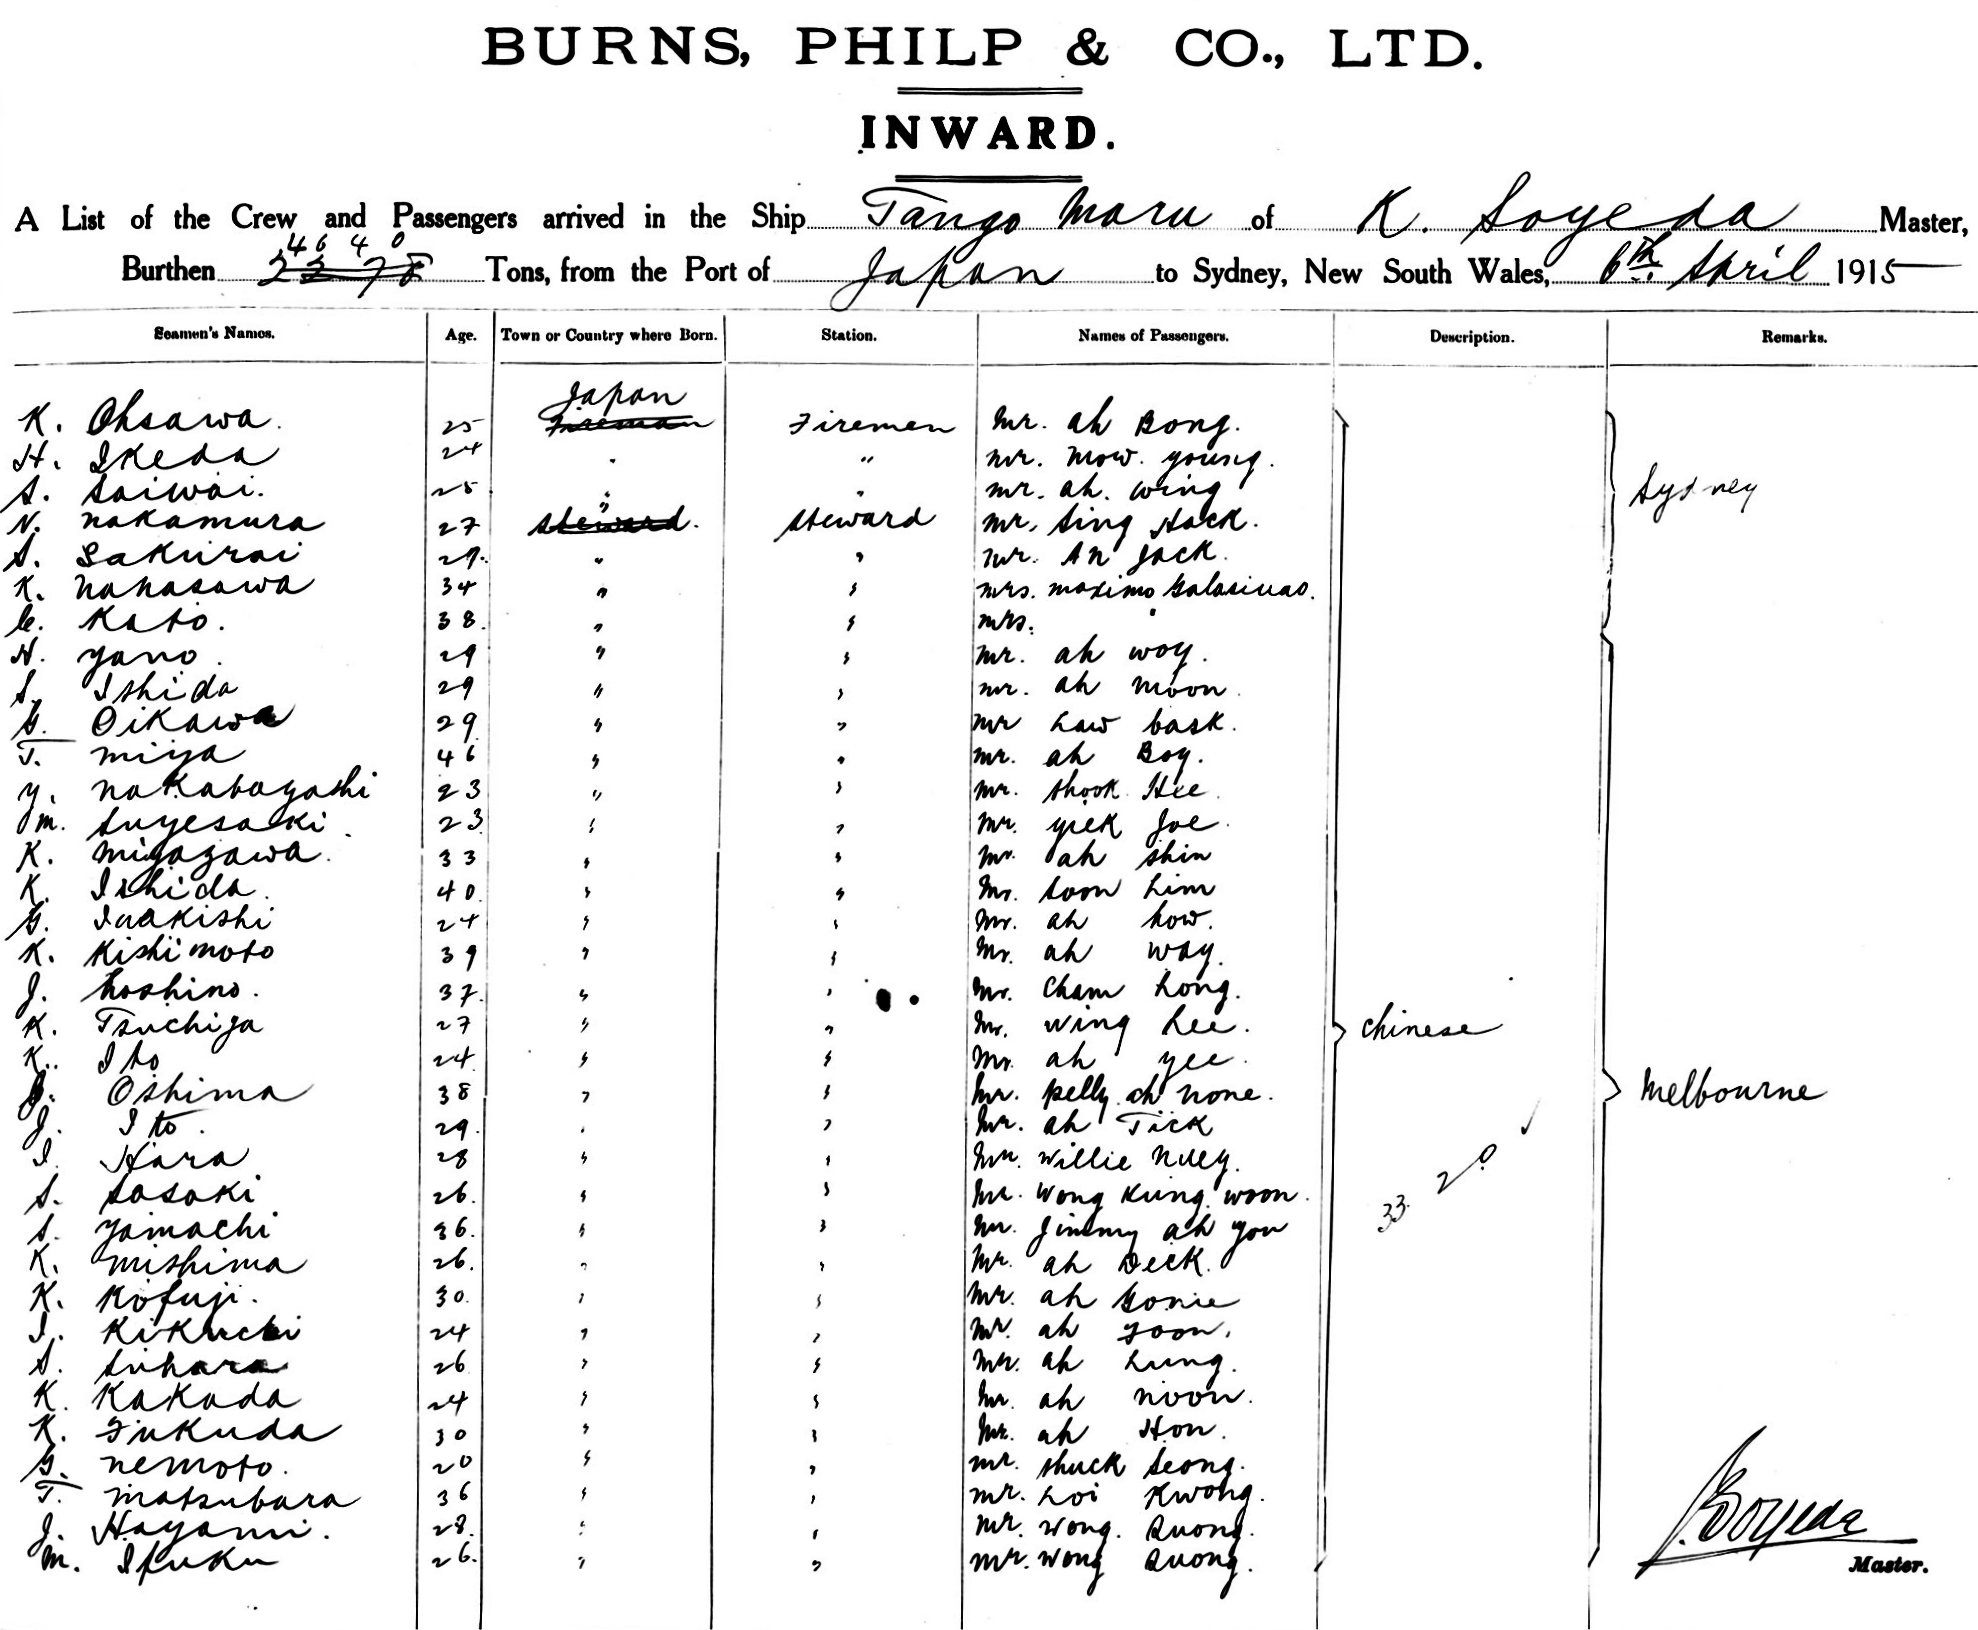 BURNS, PHILP & CO., LTD.
INWARD.
A List of the Crew and Passengers arrived in the Ship Tango Maru of K. Soyeda Master,
4640
Burthen Tons, from the Port of Japan to Sydney, New South Wales, 6th April 1915
Seamen's Names. Age. Town or Country where Born. Station. Names of Passengers. Description. Remarks.
Japan
K. Ohsawa. 25 Fireman Firemen Mr. ah Bong.
H. Ikeda 24 " Mr. Mow. young.
S. Saiwai. 25 " Mr. ah. wing Sydney
N. Nakamura 27 " Steward. Steward Mr. Sing Hack.
S. Sakurai 29. " " Mr. An Jack.
K. Nakasawa 34 " " Mrs. Maximo
C. Kato. 38. " " Mrs. "
H. Yano. 29 " " Mr. ah woy.
S. Ishida 29 " " Mr. ah moon.
G. Oikawa 29 " " Mr Law bask.
T. Miya 46 " " Mr. ah Boy.
Y. Nakabayashi 23 " " Mr. Shook Hee.
M. Suyesaki. 23 " " Mr. yick Joe.
K. Miyazawa. 33 " " Mr. ah shin
K. Ishida. 40. " " Mr. Soon Lim
G. Iwakishi 24 " " Mr. ah how.
K. Kishimoto 39 " " Mr. ah way.
J. Hoshino. 37. " " Mr. Cham Long.
K. Tsuchiya 27 " " Mr. Wing Lee. Chinese
K. Ito 24. " " Mr. ah yee.
J. Oshima 38 " " Mr. Pelly ah none. Melbourne
J. Ito. 29. " " Mr. ah Tick
I. Hara 28 " " Mr. Willie Nuey.
S. Sasaki 26. " " Mr. Wong Kung woon. 33. 20
S. Yamachi 36. " " Mr. Jimmy ah you
K. Mishima 26. " " Mr. ah Deck.
K. Kofuji. 30. " " Mr. ah Gonie
I. Kikuchi 24 " " Mr. ah Foon.
S. Suhara 26 " " Mr. ah Lung.
K. Kakuda 24 " " Mr. ah noon.
K. Fukuda 30 " " Mr. ah Hon.
G. Nemoto. 20 " " Mr. Shuck Seong.
T. Matsubara 36 " " Mr. Loi Kwong.
J. Hayami. 28. " " Mr. Wong. Quong. Soyeda
M. Ifuku 26. " " Mr. Wong Quong. Master.